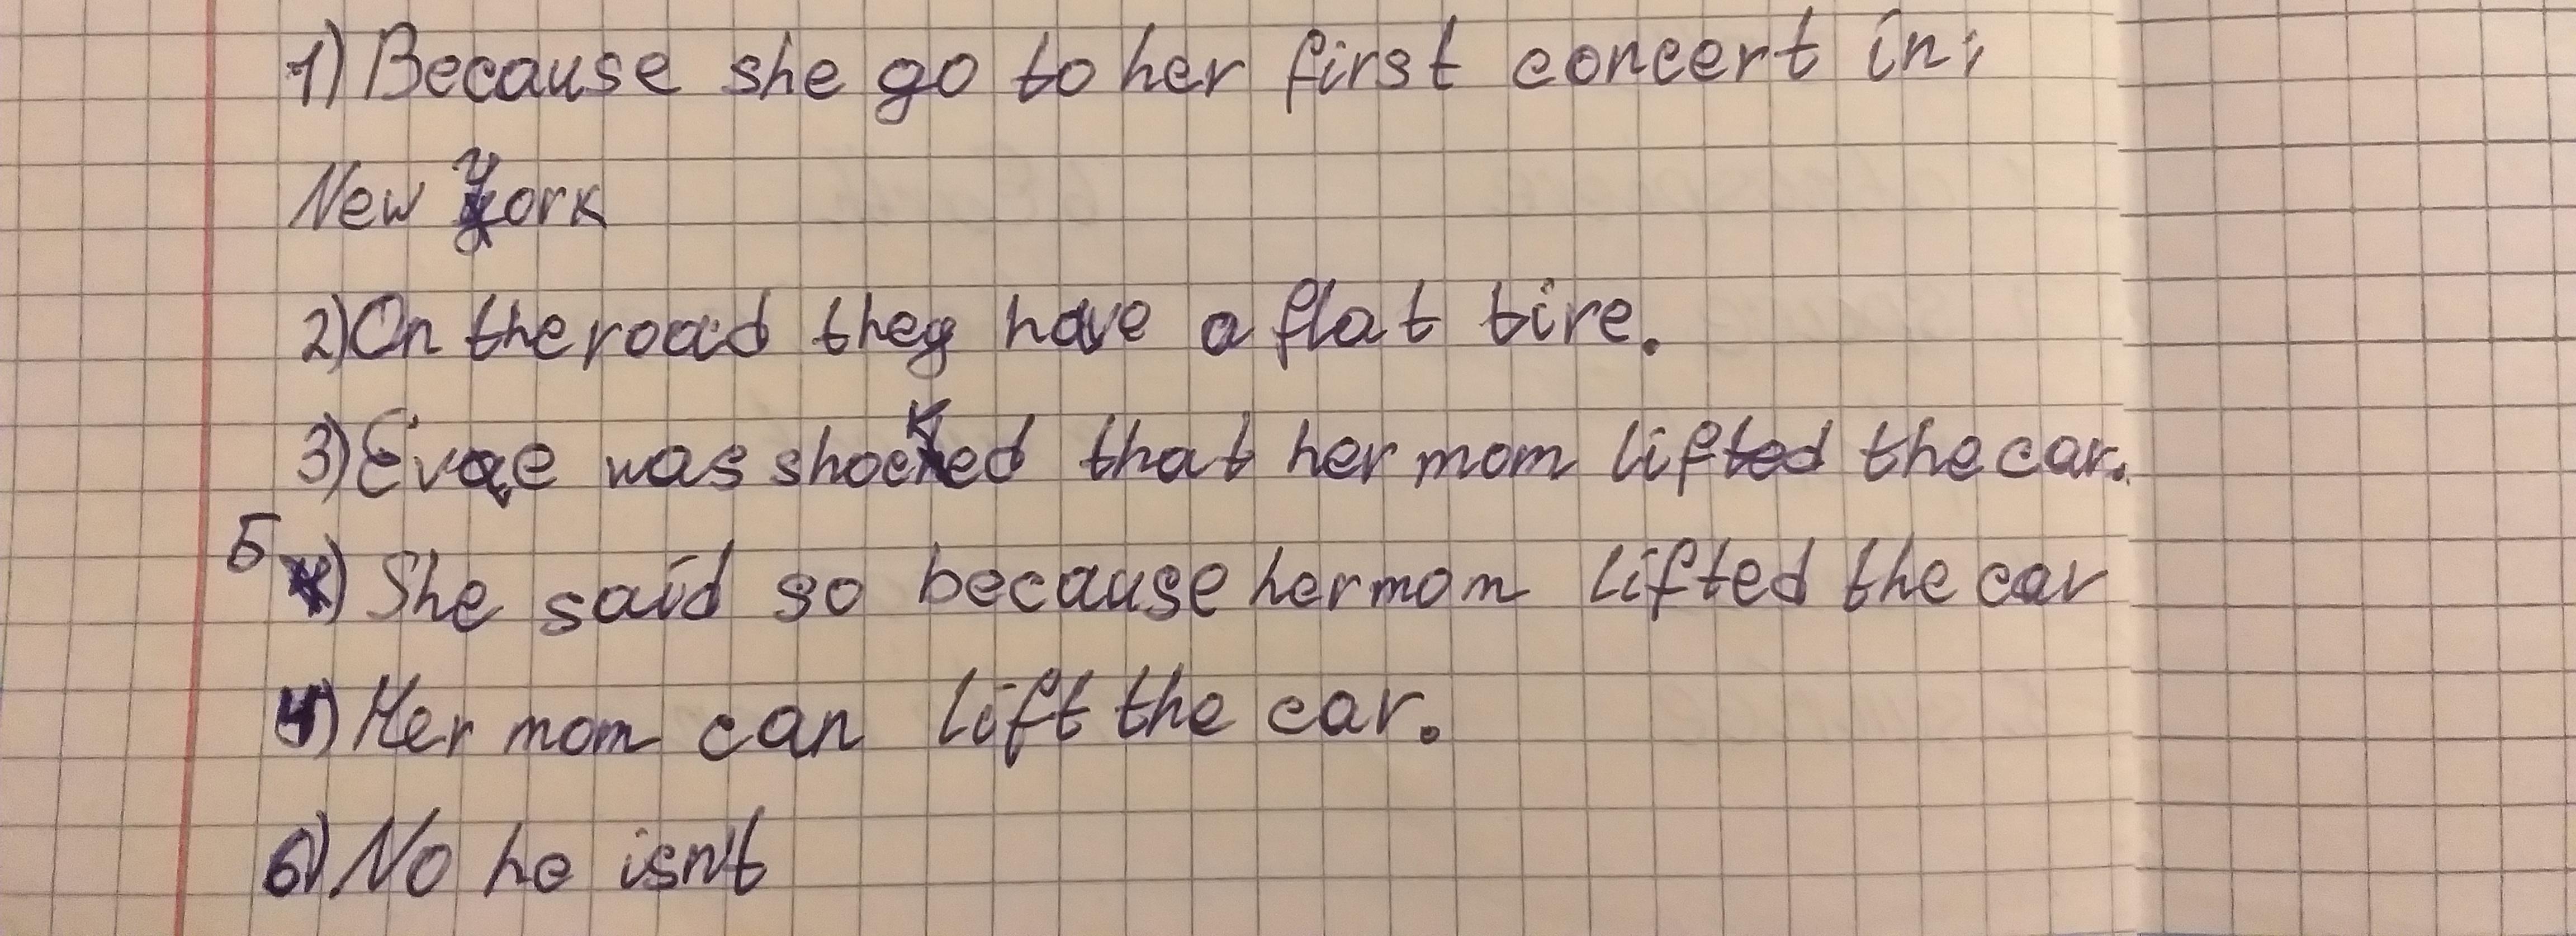 1) Because she go to her first concert in
New York
2) On the road they have a flat tire.
3) was shocked that her mom lifted the car.
5) She said so because her mom lifted the car
4) Her mom can lift the car.
6) No he isn't